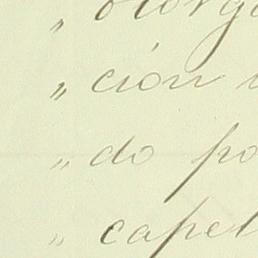 „ otorga
„ ción
„ do po
„ capel